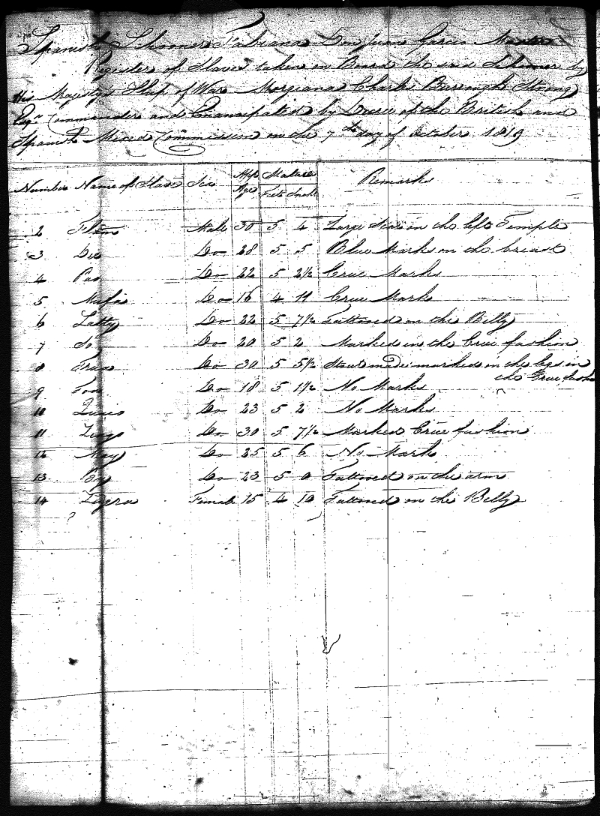 Spanish Schooner Fabiana Don Juan Garcia Master
Register of Slaves taken on Board the said Schooner by
His Majesty's Ship of War Morgiana Charles Burroughs Strong
Esqr Commander and Emancipation by Decree of the British and
Spanish Mixed Commission on the 7th day of October 1819
Number Name of Slave Sex App Age Stature Feet Inch Remarks
2 Male 30 5 4 Large Scar on the left Temple
3 Do 28 5 5 Blue Marks on the breast
4 Do 22 5 2½ Crue Marks
5 Do 16 4 11 Crue Mark
6 Latty Do 22 5 7½ Tattooed on the Belly
7 Do 20 5 2 Marked in the Crue fashion
8 Do 30 5 5½ Stout made marked on the legs in
the Crue fashion
9 Do 18 5 1½ No Marks
10 Do 23 5 2 No Marks
11 Do 30 5 7½ Marked Crue fashion
12 Do 25 5 6 No Mark
13 Do 23 5 0 Tattooed on the arm
14 Female 15 4 10 Tattooed on the Belly